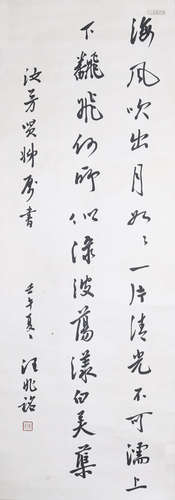 海風吹出月如〻一片清光不可濡上
下飜飛何所似渌波蕩漾白芙蕖
汝芳賢姊屬書
壬午夏 汪兆銘